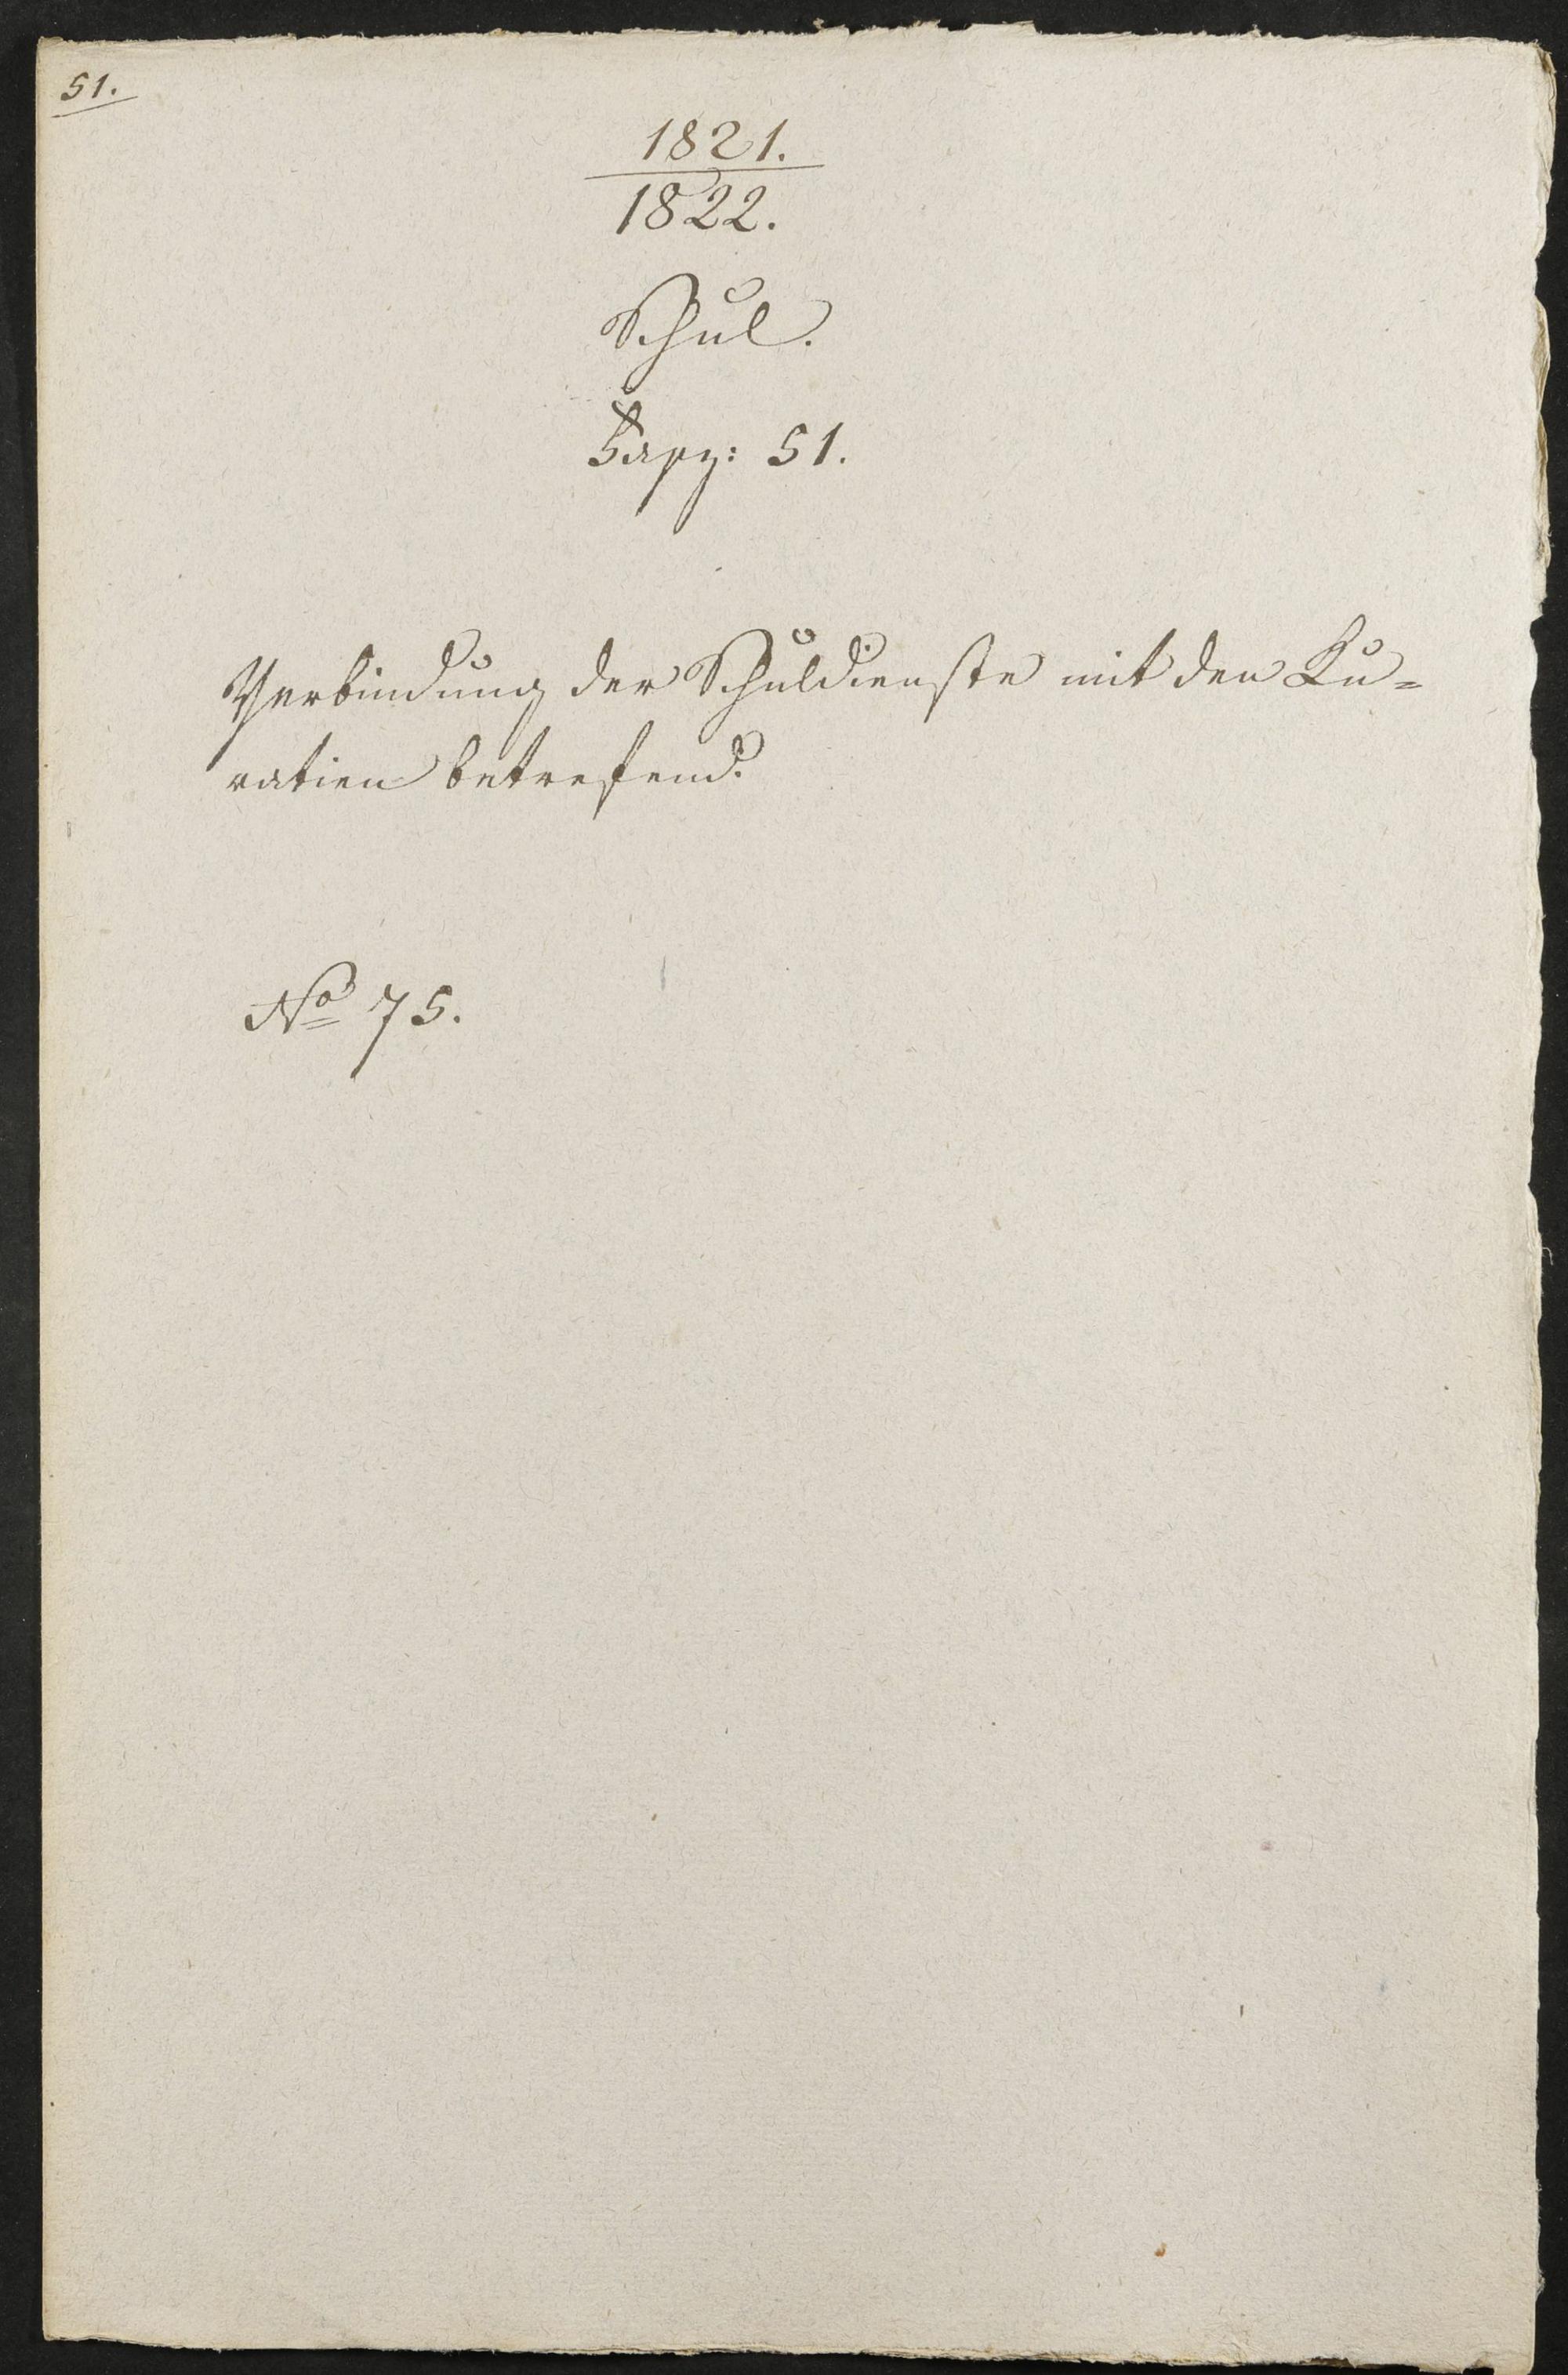 51.
1821.
1822.
Schul.
Fasz: 51.
Verbindung der Schuldienste mit den Ku=
ratien betrefend.
No 75.